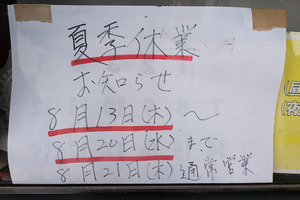 夏季休業
お知らせ
8月13日(木)〜
8月20日(水)まで
8月21日(木)通常営業
(昼
(夜